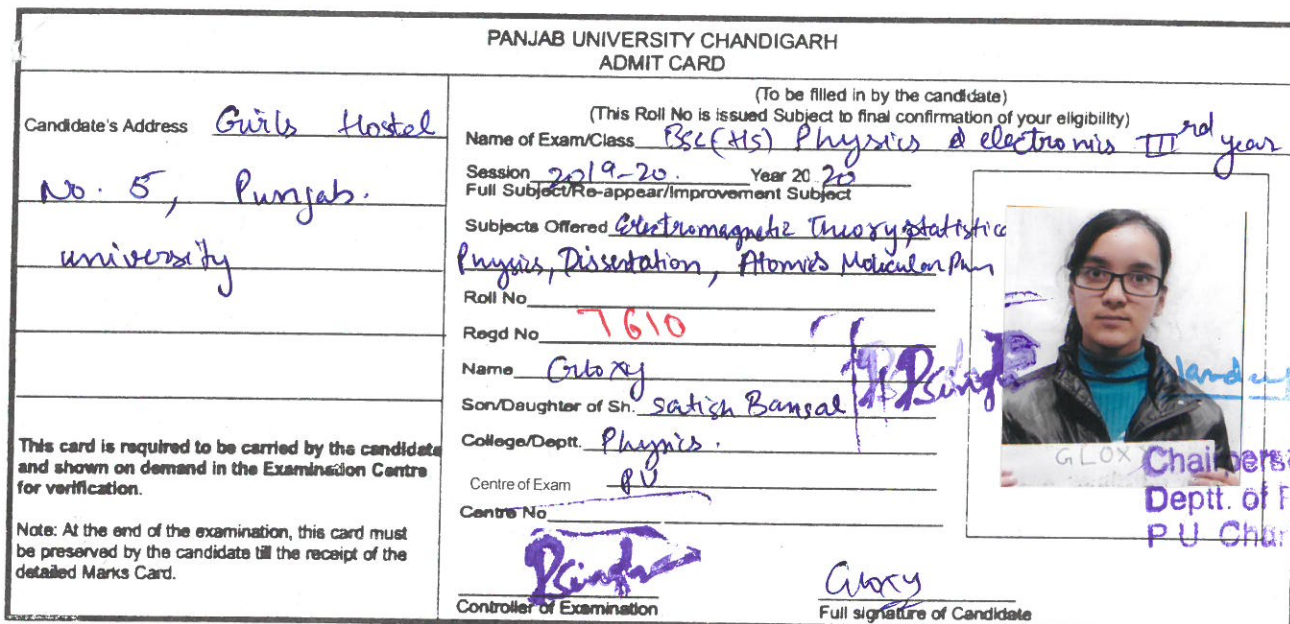 PANJAB UNIVERSITY CHANDIGARH
ADMIT CARD
Candidate's Address Girls Hostel
No. 5, Punjab.
university
This card is required to be carried by the candidate
and shown on demand in the Examination Centre
for verification.
Note: At the end of the examination, this card must
be preserved by the candidate till the receipt of the
detailed Marks Card.
(To be filled in by the candidate)
(This Roll No is issued Subject to final confirmation of your eligibility)
Name of Exam/Class BSc(HS) Physics & electronics IIIrd year
Session 2019-20. Year 20 20
Full Subject/Re-appear/Improvement Subject
Subjects Offered Electromagnetic Theory, statistica
Physics, Dissertation, Atomics Molecular
Roll No
Regd No 7610
Name Gloxy
Son/Daughter of Sh. Satish Bansal
College/Deptt. Physics.
Centre of Exam PU
Centre No
PSingh
PSingh
Controller of Examination
Gloxy
Full signature of Candidate
GLOXY
Chairpers
Deptt. of P
P U Chan